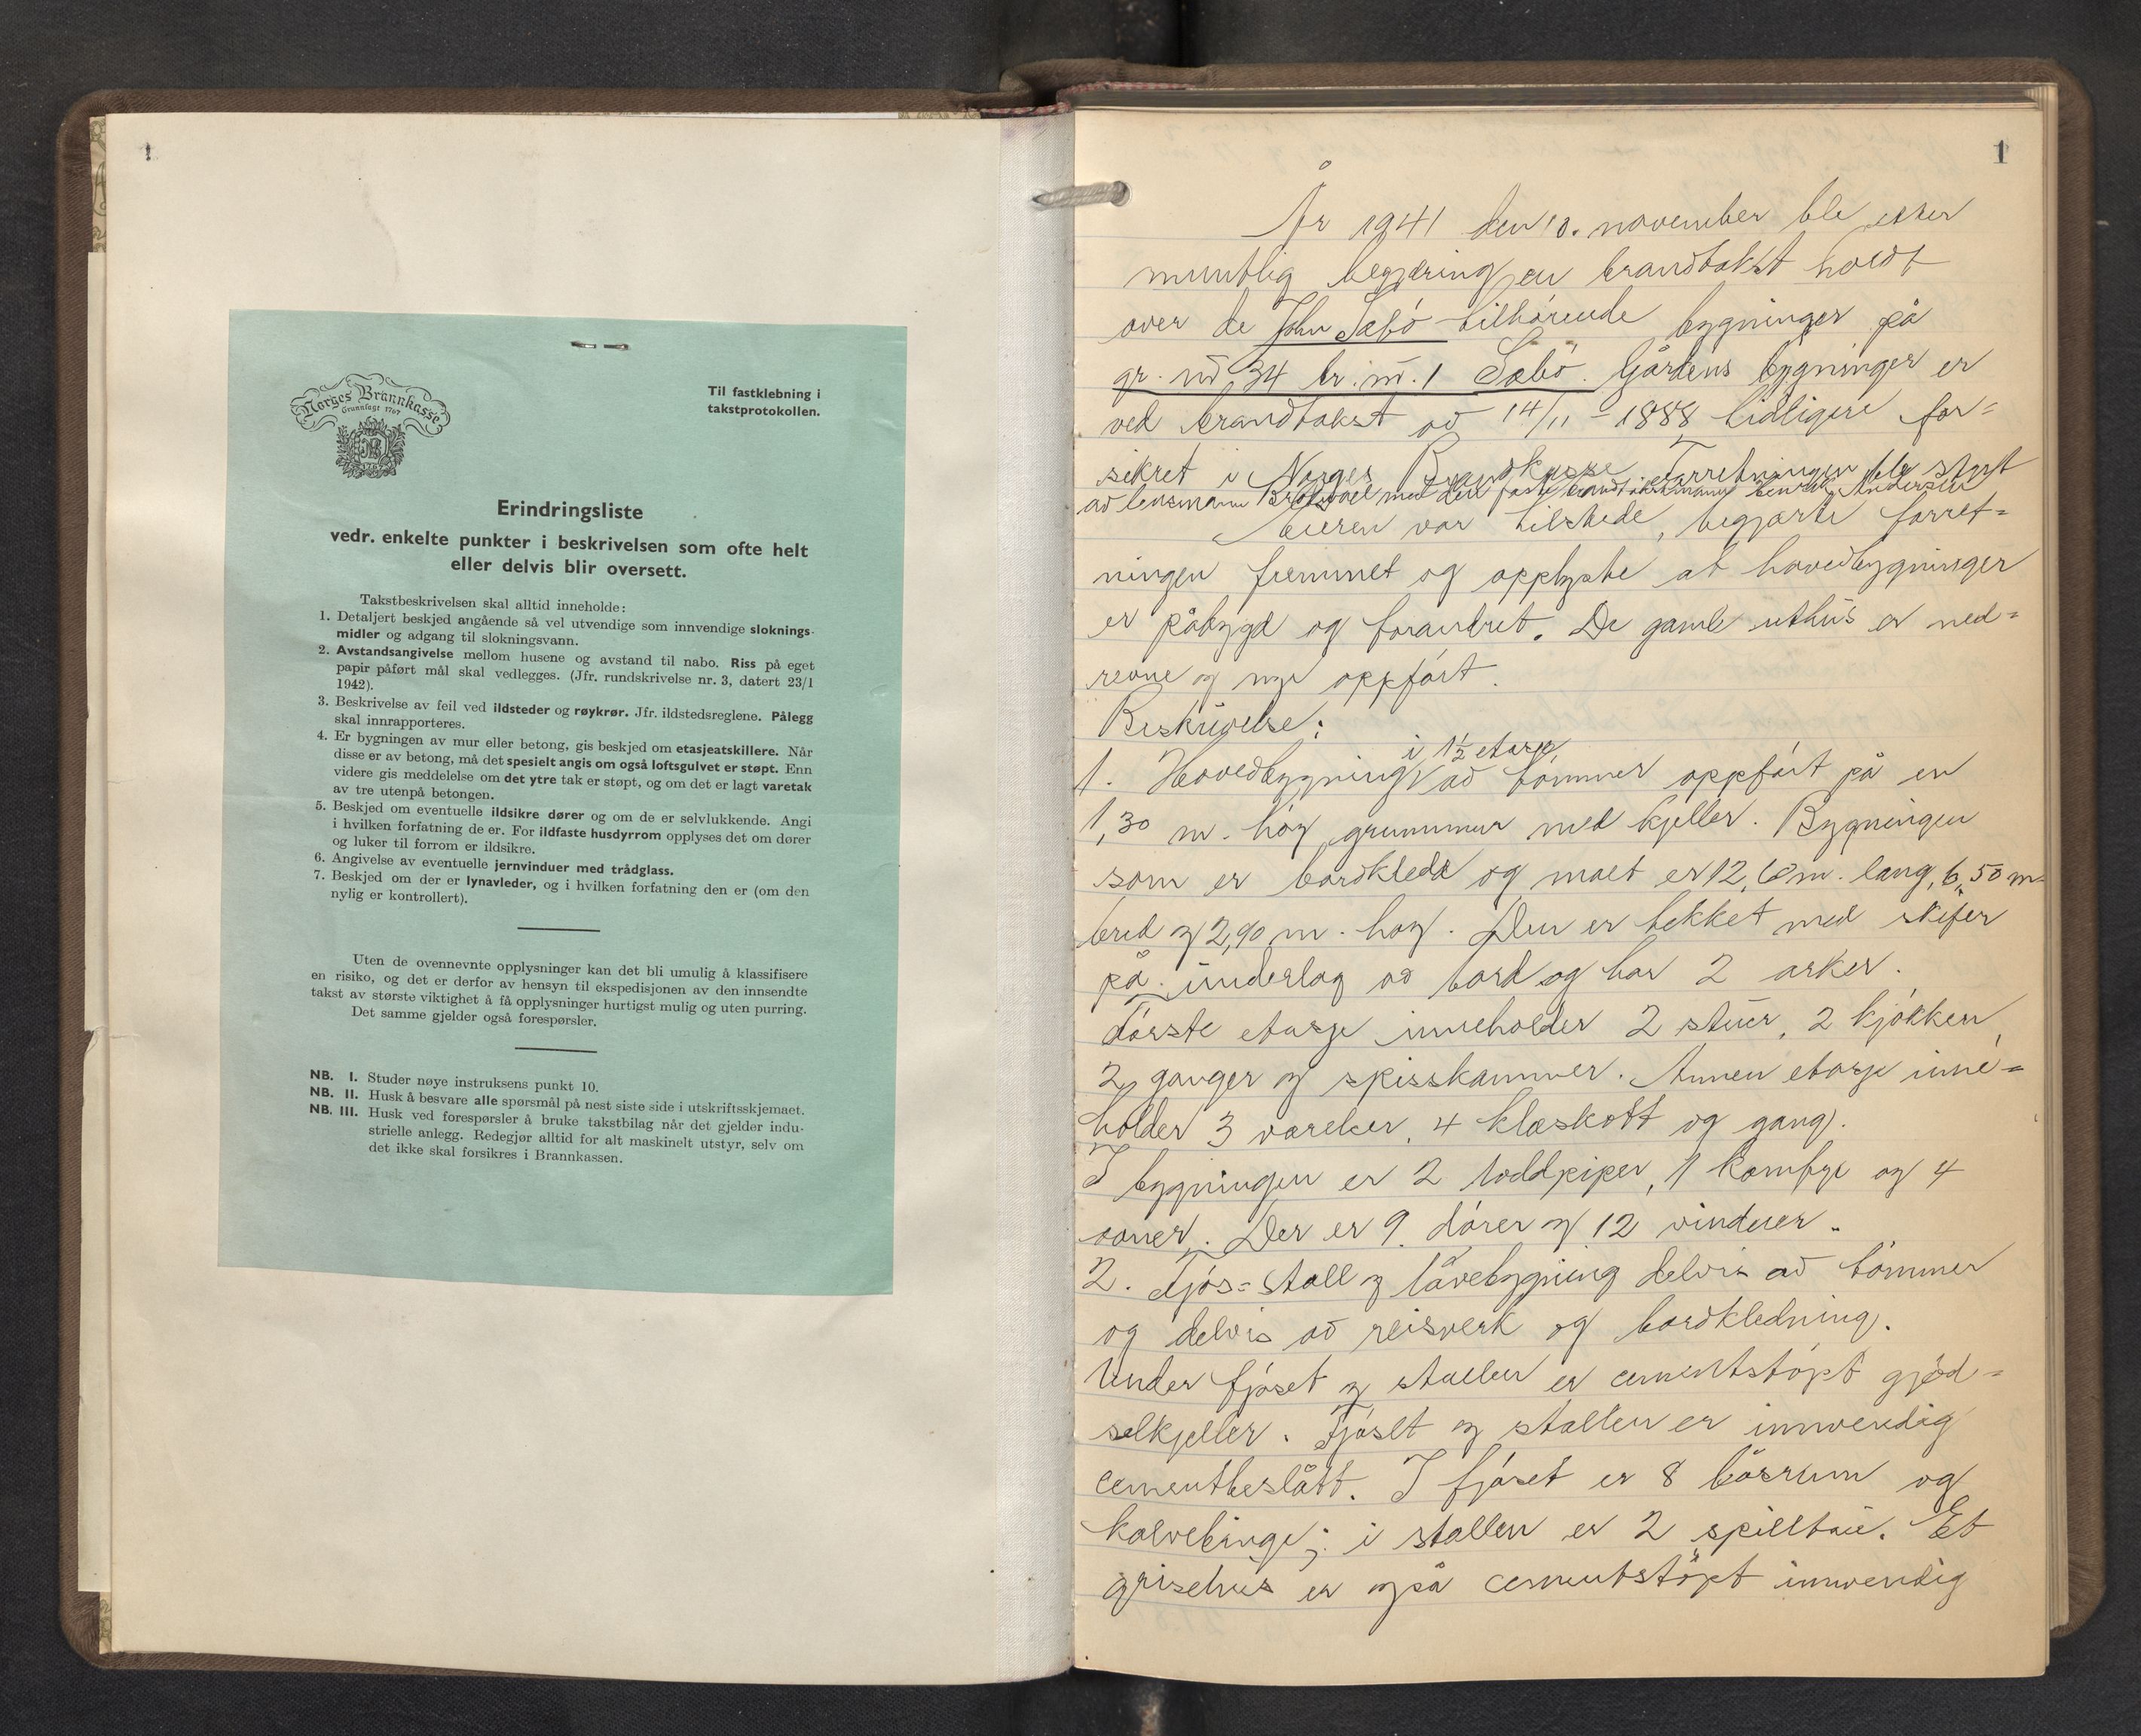 1
Norges Brannkasse
Grunnlagt 1767
Til fastklebning i
takstprotokollen.
Erindringsliste
vedr. enkelte punkter i beskrivelsen som ofte helt
eller delvis blir oversett.
Takstbeskrivelsen skal alltid inneholde:
1. Detaljert beskjed angående så vel utvendige som innvendige sloknings-
midler og adgang til slokningsvann.
2. Avstandsangivelse mellom husene og avstand til nabo. Riss på eget
papir påført mål skal vedlegges. (Jfr. rundskrivelse nr. 3, datert 23/1
1942).
3. Beskrivelse av feil ved ildsteder og røykrør. Jfr. ildstedsreglene. Pålegg
skal innrapporteres.
4. Er bygningen av mur eller betong, gis beskjed om etasjeatskillere. Når
disse er av betong, må det spesielt angis om også loftsgulvet er støpt. Enn
videre gis meddelelse om det ytre tak er støpt, og om det er lagt varetak
av tre utenpå betongen.
5. Beskjed om eventuelle ildsikre dører og om de er selvlukkende. Angi
i hvilken forfatning de er. For ildfaste husdyrrom opplyses det om dører
og luker til forrom er ildsikre.
6. Angivelse av eventuelle jernvinduer med trådglass.
7. Beskjed om der er lynavleder, og i hvilken forfatning den er (om den
nylig er kontrollert).
Uten de ovennevnte opplysninger kan det bli umulig å klassifisere
en risiko, og det er derfor av hensyn til ekspedisjonen av den innsendte
takst av største viktighet å få opplysninger hurtigst mulig og uten purring.
Det samme gjelder også forespørsler.
NB. I. Studer nøye instruksens punkt 10.
NB. II. Husk å besvare alle spørsmål på nest siste side i utskriftsskjemaet.
NB. III. Husk ved forespørsler å bruke takstbilag når det gjelder indu-
strielle anlegg. Redegjør alltid for alt maskinelt utstyr, selv om
det ikke skal forsikres i Brannkassen.
1
År 1941 den 10. november ble etter
muntlig begjæring en brandtakst holdt
over de John Sæbó tilhórende bygninger på
gr. nr 34 br. nr. 1 Sæbó. Gårdens bygninger er
ved brandtakst av 14/11 - 1888 tidligere for=
sikret i Norges Brandkasse. Forretningen ble styrt
av lensmann med den faste brandtakstmann Andersen
Eieren var tilstede, begjærte forret=
ningen fremmet og opplyste at hovedbygningen
er påbygd og forandret. De gamle uthus er ned=
revne og nye oppfórt.
Beskrivelse:
i 1½ etasje
1. Hovedbygning av tómmer oppfórt på en
1,30 m. hóg grunnmur med kjeller. Bygningen
som er bordkledd og malt er 12,60 m. lang, 6,50 m
bred og 2,90 m. hóg. Den er tekket med skifer
på underlag av bord og har 2 arker.
Fórste etasje inneholder 2 stuer, 2 kjókken,
2 ganger og spisskammer. Annen etasje inne=
holder 3 værelser, 4 kleskott og gang.
I bygningen er 2 loddpiper, 1 komfyr og 4
ovner. Der er 9 dórer og 12 vinduer.
2. Fjós= stall og låvebygning delvis av tómmer
og delvis av reisverk og bordkledning.
Under fjóset og stallen er cementstópt gjód=
selkjeller. Fjóset og stallen er innvendig
cementbeslått. I fjóset er 8 båsrum og
kalvebinge; i stallen er 2 spilltau. Et
grisehus er også cementstópt innvendig